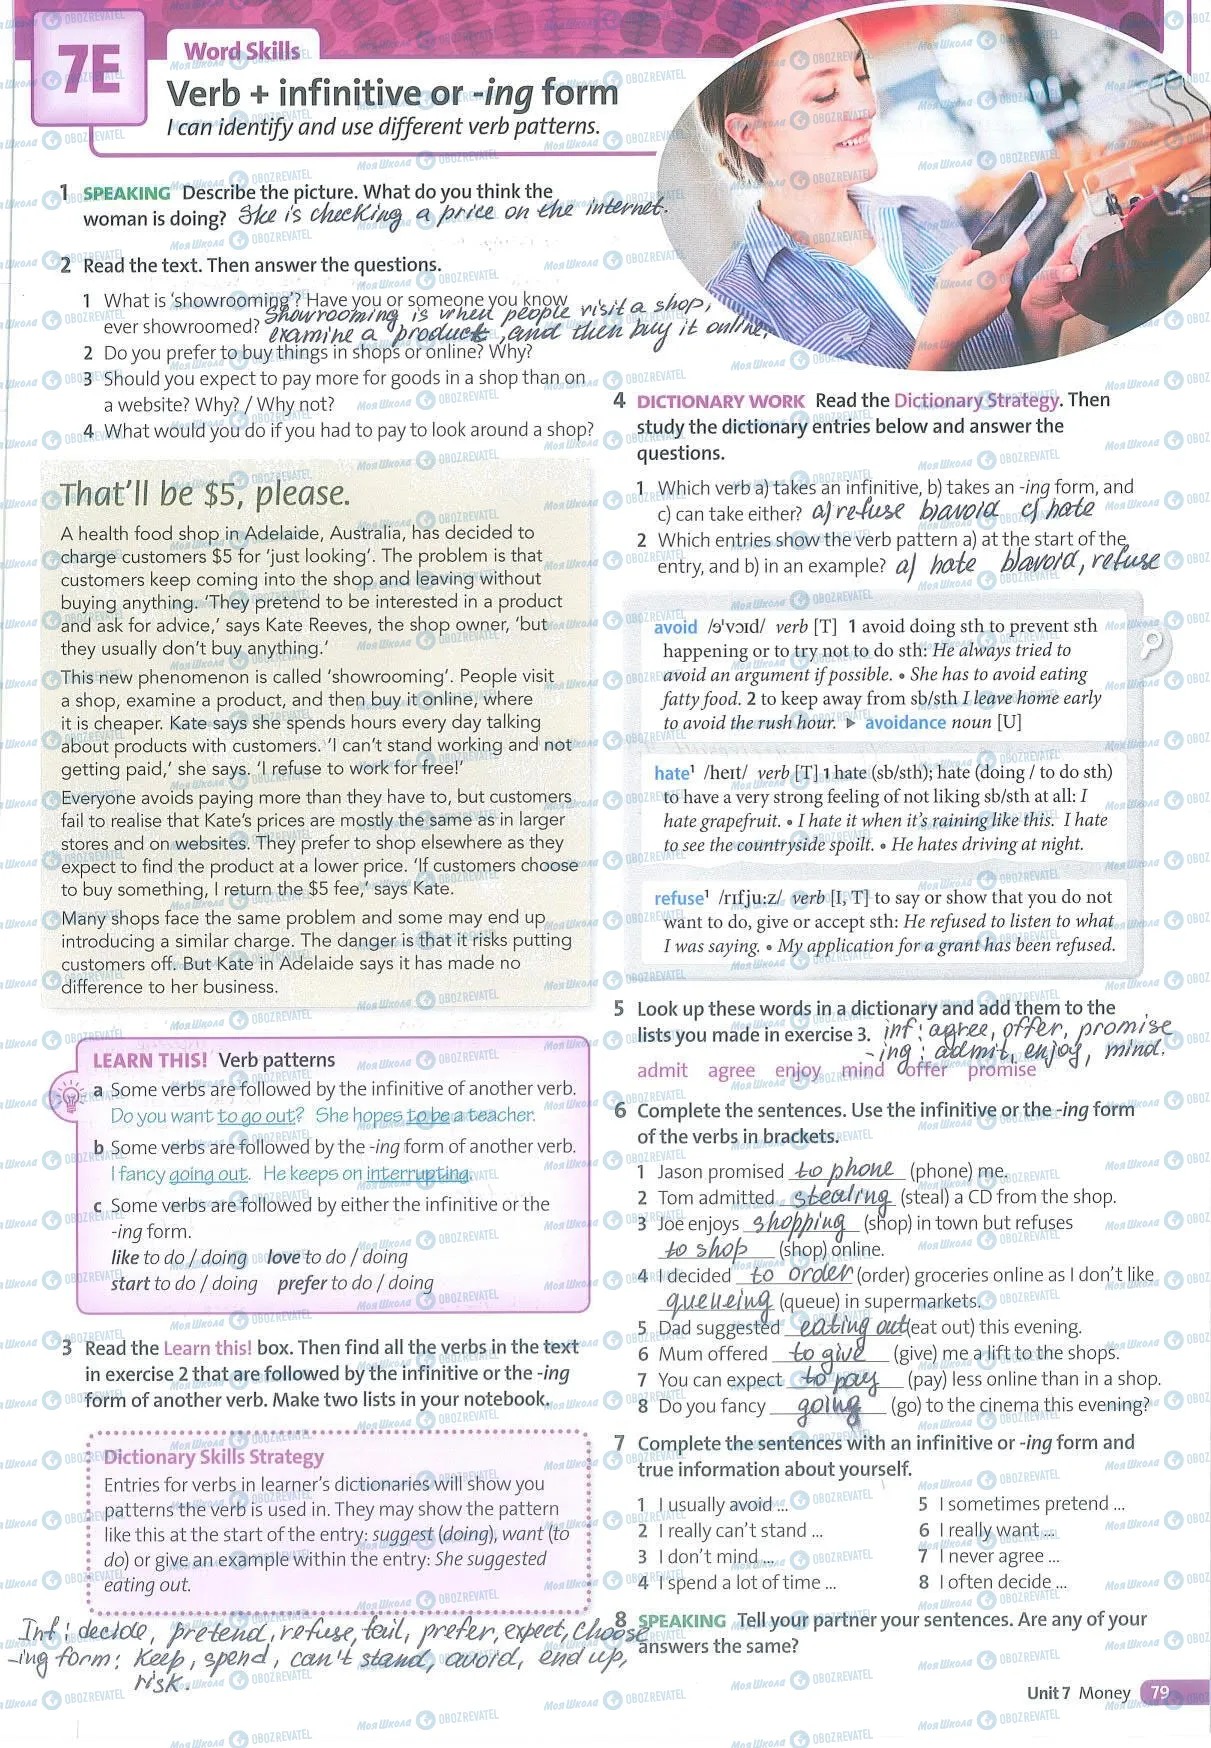 7E
Word Skills
Verb + infinitive or -ing form
I can identify and use different verb patterns.
1 SPEAKING Describe the picture. What do you think the
woman is doing? She is checking a price on the internet.
2 Read the text. Then answer the questions.
1 What is 'showrooming'? Have you or someone you know
ever showroomed? Showrooming is when people visit a shop,
examine a product, and then buy it online.
2 Do you prefer to buy things in shops or online? Why?
3 Should you expect to pay more for goods in a shop than on
a website? Why? / Why not?
4 What would you do if you had to pay to look around a shop?
That'll be $5, please.
A health food shop in Adelaide, Australia, has decided to
charge customers $5 for 'just looking'. The problem is that
customers keep coming into the shop and leaving without
buying anything. 'They pretend to be interested in a product
and ask for advice,' says Kate Reeves, the shop owner, 'but
they usually don't buy anything.'
This new phenomenon is called 'showrooming'. People visit
a shop, examine a product, and then buy it online, where
it is cheaper. Kate says she spends hours every day talking
about products with customers. 'I can't stand working and not
getting paid,' she says. 'I refuse to work for free!'
Everyone avoids paying more than they have to, but customers
fail to realise that Kate's prices are mostly the same as in larger
stores and on websites. They prefer to shop elsewhere as they
expect to find the product at a lower price. 'If customers choose
to buy something, I return the $5 fee,' says Kate.
Many shops face the same problem and some may end up
introducing a similar charge. The danger is that it risks putting
customers off. But Kate in Adelaide says it has made no
difference to her business.
LEARN THIS! Verb patterns
a Some verbs are followed by the infinitive of another verb.
Do you want to go out? She hopes to be a teacher.
b Some verbs are followed by the -ing form of another verb.
I fancy going out. He keeps on interrupting.
c Some verbs are followed by either the infinitive or the
-ing form.
like to do / doing love to do / doing
start to do / doing prefer to do / doing
3 Read the Learn this! box. Then find all the verbs in the text
in exercise 2 that are followed by the infinitive or the -ing
form of another verb. Make two lists in your notebook.
Dictionary Skills Strategy
Entries for verbs in learner's dictionaries will show you
patterns the verb is used in. They may show the pattern
like this at the start of the entry: suggest (doing), want (to
do) or give an example within the entry: She suggested
eating out.
Inf: decide, pretend, refuse, fail, prefer, expect, choose
-ing form: keep, spend, can't stand, avoid, end up,
risk.
4 DICTIONARY WORK Read the Dictionary Strategy. Then
study the dictionary entries below and answer the
questions.
1 Which verb a) takes an infinitive, b) takes an -ing form, and
c) can take either? a) refuse b) avoid c) hate
2 Which entries show the verb pattern a) at the start of the
entry, and b) in an example? a) hate b) avoid, refuse
avoid /ə'vɔɪd/ verb [T] 1 avoid doing sth to prevent sth
happening or to try not to do sth: He always tried to
avoid an argument if possible. • She has to avoid eating
fatty food. 2 to keep away from sb/sth I leave home early
to avoid the rush hour. ▶ avoidance noun [U]
hate¹ /heɪt/ verb [T] 1 hate (sb/sth); hate (doing / to do sth)
to have a very strong feeling of not liking sb/sth at all: I
hate grapefruit. • I hate it when it's raining like this. I hate
to see the countryside spoilt. • He hates driving at night.
refuse¹ /rɪfju:z/ verb [I, T] to say or show that you do not
want to do, give or accept sth: He refused to listen to what
I was saying. • My application for a grant has been refused.
5 Look up these words in a dictionary and add them to the
lists you made in exercise 3. inf: agree, offer, promise
-ing: admit, enjoy, mind.
admit agree enjoy mind offer promise
6 Complete the sentences. Use the infinitive or the -ing form
of the verbs in brackets.
1 Jason promised to phone (phone) me.
2 Tom admitted stealing (steal) a CD from the shop.
3 Joe enjoys shopping (shop) in town but refuses
to shop (shop) online.
4 I decided to order (order) groceries online as I don't like
queueing (queue) in supermarkets.
5 Dad suggested eating out (eat out) this evening.
6 Mum offered to give (give) me a lift to the shops.
7 You can expect to pay (pay) less online than in a shop.
8 Do you fancy going (go) to the cinema this evening?
7 Complete the sentences with an infinitive or -ing form and
true information about yourself.
1 I usually avoid ...
2 I really can't stand ...
3 I don't mind ...
4 I spend a lot of time ...
5 I sometimes pretend ...
6 I really want ...
7 I never agree ...
8 I often decide ...
8 SPEAKING Tell your partner your sentences. Are any of your
answers the same?
Unit 7 Money 79